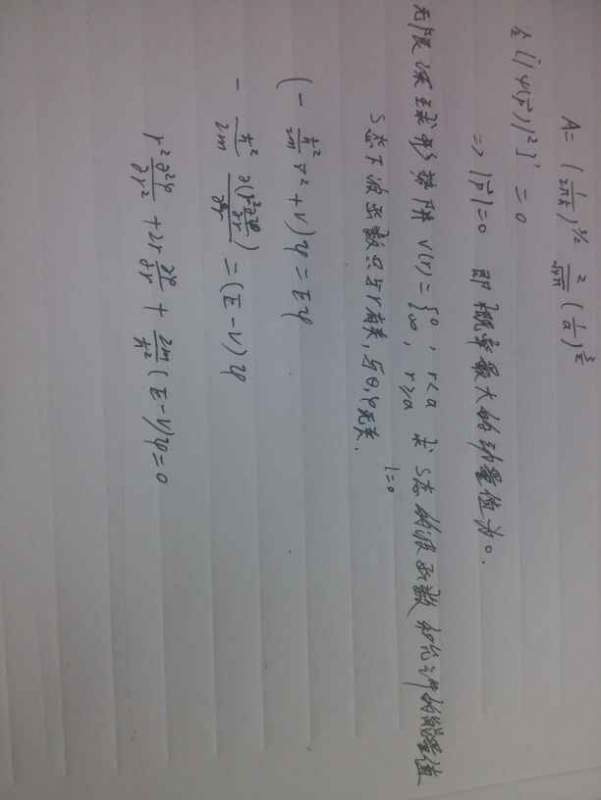 A = (1/2πħ)^{3/2} 2/√π (1/a)^{3/2}
令 [|ψ(p⃗)|²]' = 0
⇒ |p⃗| = 0 即概率最大的动量值为0.
无限深球形势阱 V(r) = { 0, r<a ∞, r≥a 求S态的波函数和允许的能量值
S态下波函数只与r有关, 与θ,φ无关.
l=0
(-ħ²/2m ∇² + V)ψ = Eψ
-ħ²/2m ∂(r²∂ψ/∂r)/∂r = (E-V)ψ
r² ∂²ψ/∂r² + 2r ∂ψ/∂r + 2m/ħ² (E-V)ψ = 0